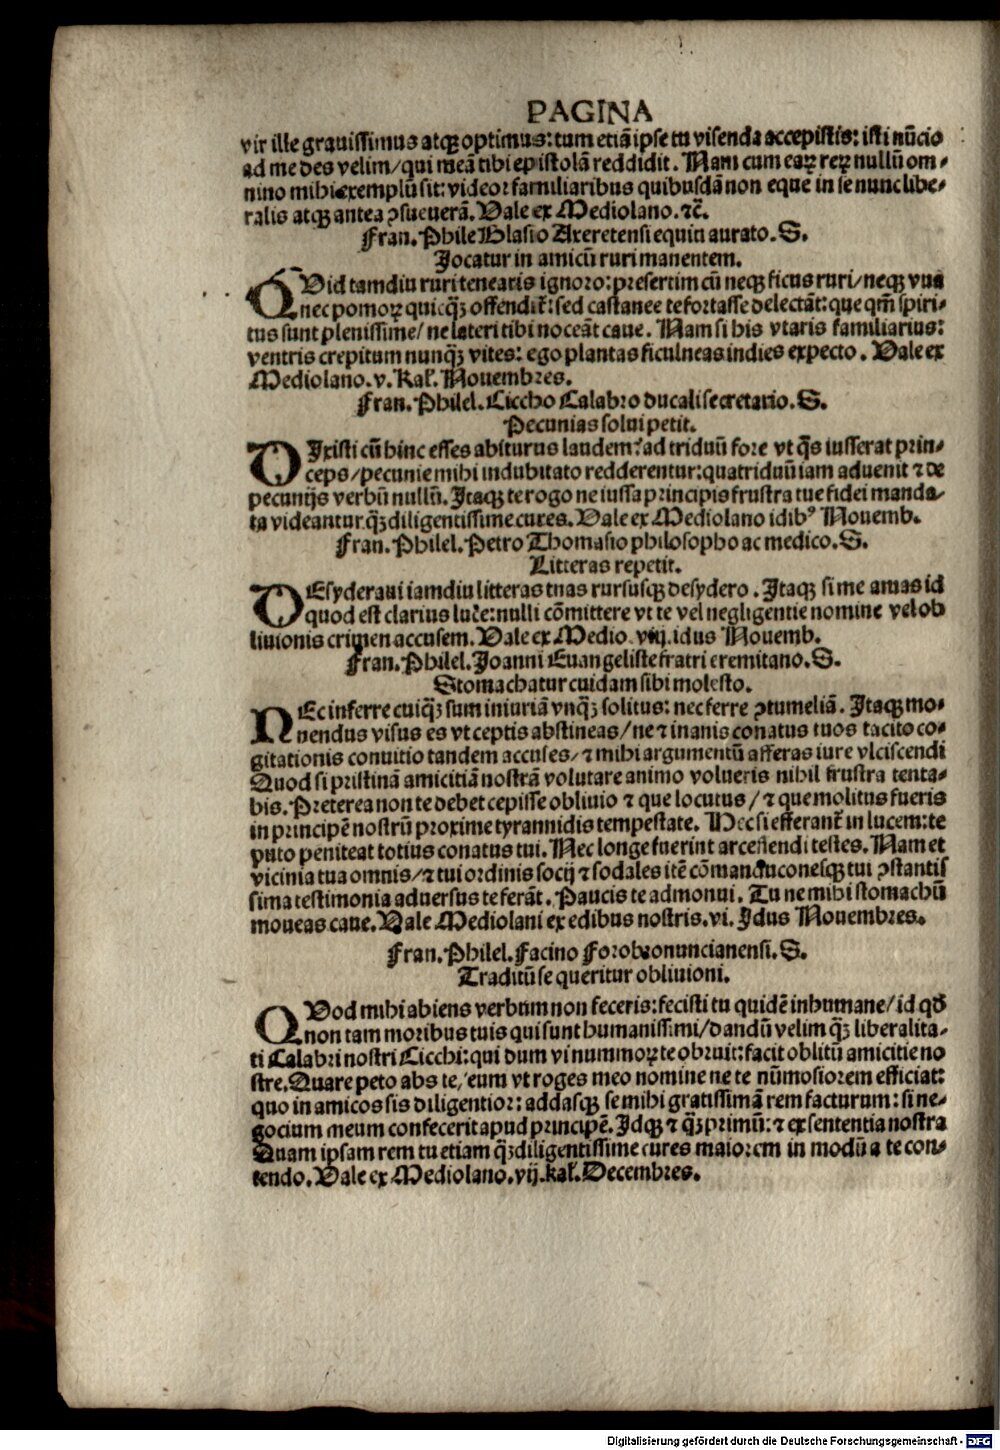 PAGINA
vir ille grauissimus atqꝫ optimus: tum etiã ipse tu visenda accepistis: isti nũcio
ad me des velim/ qui meã tibi epistolã reddidit. Nam cum eaꝝ reꝝ nullũ om-
nino mihi exemplũ sit: videor familiaribus quibusdã non eque in se nunc libe-
ralis atqꝫ antea ꝯsueuerã. Vale ex Mediolano. ⁊c̃.
Fran. Phile Blasio Axeretensi equiti aurato. S.
Jocatur in amicũ ruri manentem.
QVid tamdiu ruri tenearis ignoro: presertim cũ neqꝫ ficus ruri/ neqꝫ vua
nec pomoꝝ quicqꝫ̃ offendit̃: sed castanee te fortasse delectãt: que qm̃ spiri-
tus sunt plenissime/ ne lateri tibi noceãt caue. Nam si his vtaris familiarius:
ventris crepitum nunqꝫ̃ vites: ego plantas ficulneas indies expecto. Vale ex
Mediolano. v. Kal̃. Nouembres.
Fran. Philel. Ciccho Calabro ducali secretario. S.
Pecunias solui petit.
DIxisti cũ hinc esses abiturus laudem: ad triduũ fore vt q̃s iusserat prin-
ceps/ pecunie mihi indubitato redderentur: quatriduũ iam aduenit ⁊ de
pecunijs verbũ nullũ. Itaqꝫ te rogo ne iussa principis frustra tue fidei manda-
ta videantur qꝫ̃ diligentissime cures. Vale ex Mediolano idibꝰ Nouemb.
Fran. Philel. Petro Thomasio philosopho ac medico. S.
Litteras repetit.
DEsyderaui iamdiu litteras tuas rursusqꝫ desydero. Itaqꝫ si me amas id
quod est clarius luce: nulli cõmittere vt te vel negligentie nomine vel ob
liuionis crimen accusem. Vale ex Medio. viij. idus Nouemb.
Fran. Philel. Joanni Euangeliste fratri eremitano. S.
Stomachatur cuidam sibi molesto.
NEc inferre cuiqꝫ̃ sum iniuriã vnqꝫ̃ solitus: nec ferre ꝯtumeliã. Itaqꝫ mo-
nendus visus es vt ceptis abstineas/ ne ⁊ inanis conatus tuos tacito co-
gitationis conuitio tandem accuses/ ⁊ mihi argumentũ afferas iure vlciscendi
Quod si pristinã amicitiã nostrã volutare animo volueris nihil frustra tenta-
bis. Preterea non te debet cepisse obliuio ⁊ que locutus/ ⁊ que molitus fueris
in principẽ nostrũ proxime tyrannidis tempestate. Hec si efferant̃ in lucem: te
puto peniteat totius conatus tui. Nec longe fuerint arcessendi testes. Nam et
vicinia tua omnis/ ⁊ tui ordinis socij ⁊ sodales itẽ cõmanduconesqꝫ tui ꝯstantis
sima testimonia aduersus te ferãt. Paucis te admonui. Tu ne mihi stomachũ
moueas caue. Vale Mediolani ex edibus nostris. vi. Idus Nouembres.
Fran. Philel. Facino Forobronuncianensi. S.
Traditũ se queritur obliuioni.
QVod mihi abiens verbum non feceris: fecisti tu quidẽ inhumane/ id qd̃
non tam moribus tuis qui sunt humanissimi/ dandũ velim qꝫ̃ liberalita-
ti Calabri nostri Cicchi: qui dum vi nummoꝝ te obruit: facit oblitũ amicitie no
stre. Quare peto abs te/ eum vt roges meo nomine ne te nũmosiorem efficiat:
quo in amicos sis diligentior: addasqꝫ se mihi gratissimã rem facturum: si ne-
gocium meum confecerit apud principẽ. Idqꝫ ⁊ qꝫ̃ primũ: ⁊ ex sententia nostra
Quam ipsam rem tu etiam qꝫ̃ diligentissime cures maiorem in modũ a te con-
tendo. Vale ex Mediolano. vij. kal̃. Decembres.
Digitalisierung gefördert durch die Deutsche Forschungsgemeinschaft - DFG